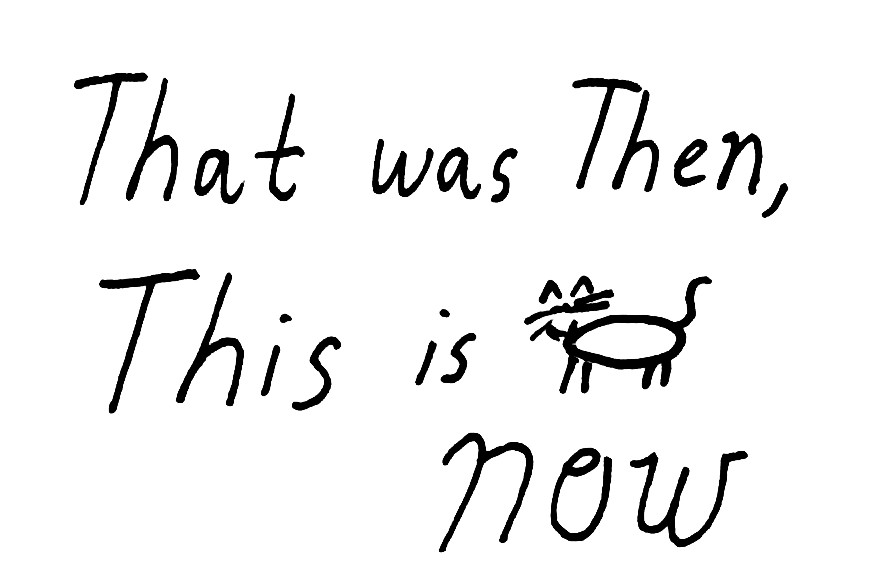 That was Then,
This is
now